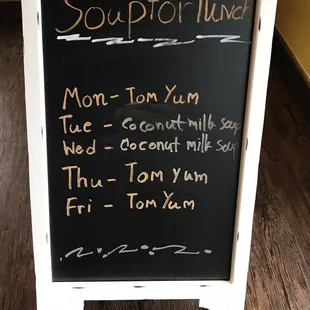 Soup for lunch
Mon - Tom Yum
Tue - Coconut milk soup
Wed - Coconut milk soup
Thu - Tom yum
Fri - Tom Yum